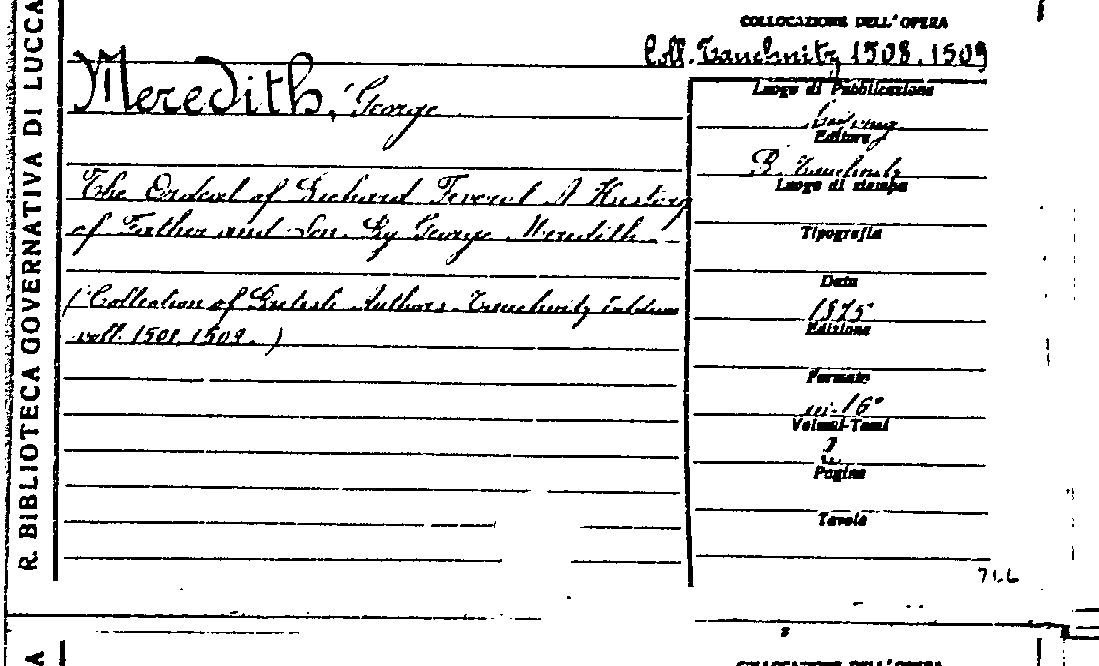 R. BIBLIOTECA GOVERNATIVA DI LUCCA
COLLOCAZIONE DELL'OPERA
Coll. Tauchnitz, 1508, 1509
Meredith, George
The Ordeal of Richard Feverel A History
of Father and Son. By George Meredith.
(Collection of British Authors Tauchnitz Edition
voll. 1508, 1509.)
Luogo di Pubblicazione
Editore
B. Tauchnitz
Luogo di stampa
Tipografia
Data
1875
Edizione
Formato
in-16°
Volumi-Tomi
2
Pagine
Tavole
COLLOCAZIONE DELL'OPERA